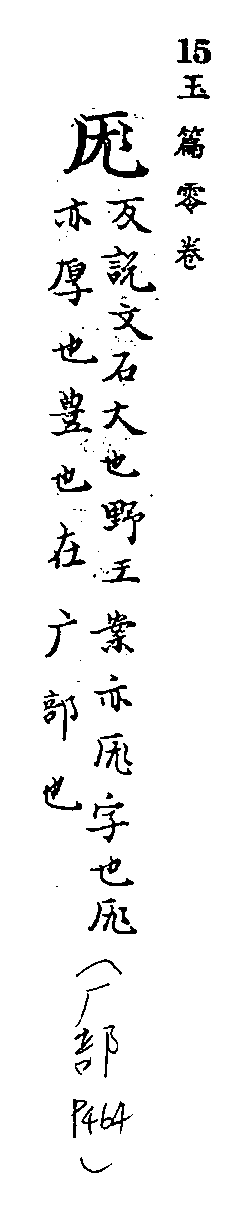 15玉篇零卷
厖
反說文石大也野王案亦厖字也厖
亦厚也豊也在广部也
(厂部P464)